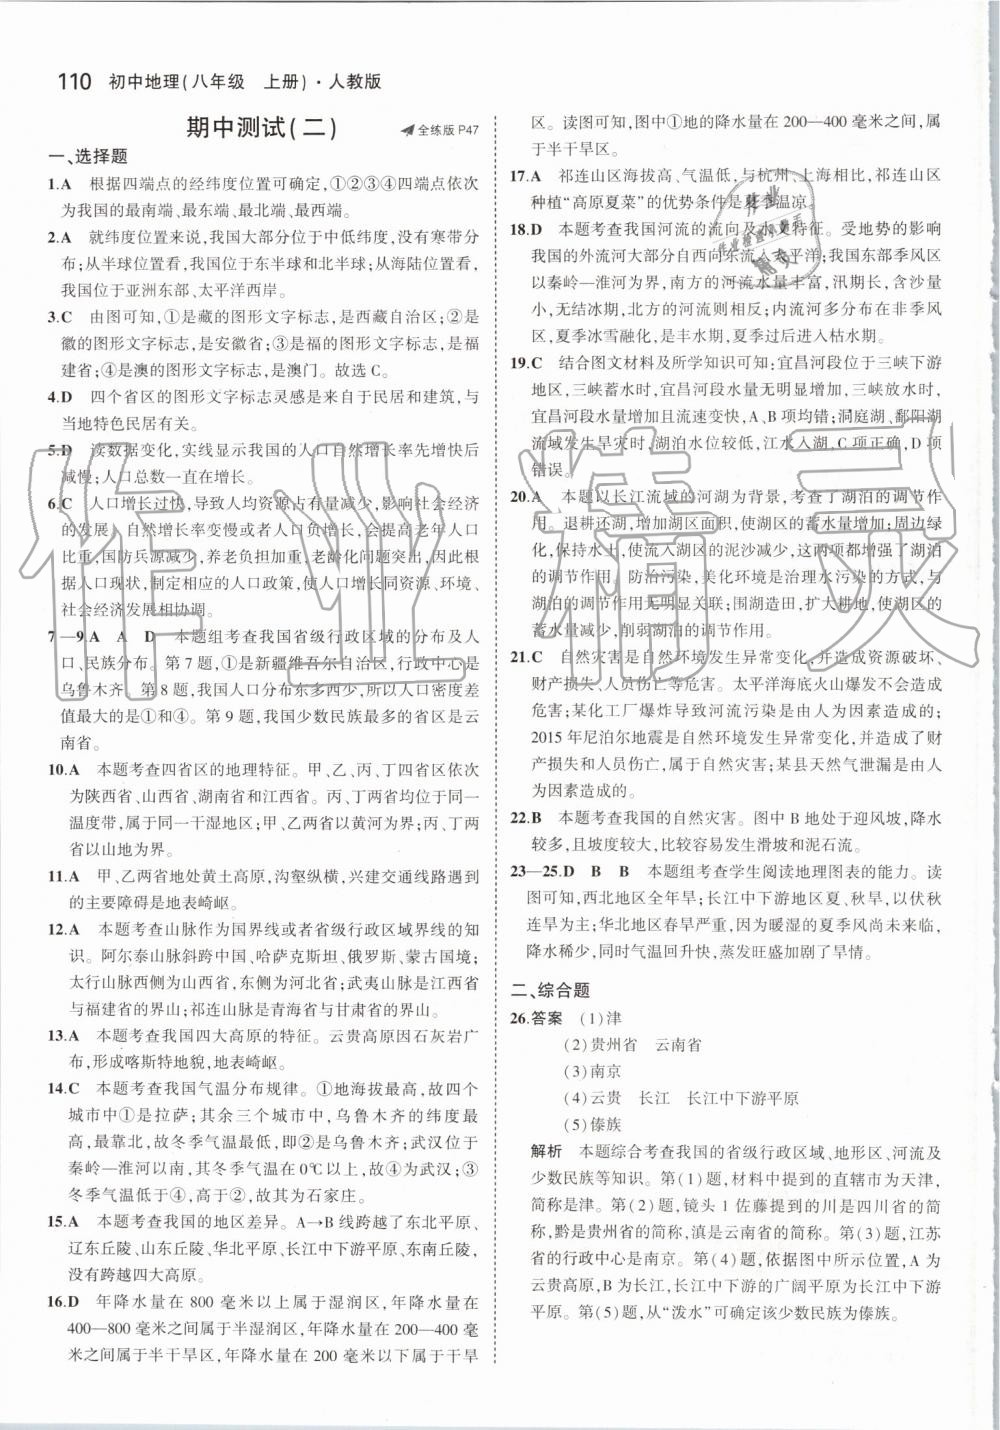 110 初中地理(八年级 上册)·人教版
期中测试(二)
全练版 P47
一、选择题
1.A 根据四端点的经纬度位置可确定,①②③④四端点依次
为我国的最南端、最东端、最北端、最西端。
2.A 就纬度位置来说,我国大部分位于中低纬度,没有寒带分
布;从半球位置看,我国位于东半球和北半球;从海陆位置看,
我国位于亚洲东部、太平洋西岸。
3.C 由图可知,①是藏的图形文字标志,是西藏自治区;②是
徽的图形文字标志,是安徽省;③是福的图形文字标志,是福
建省;④是澳的图形文字标志,是澳门。故选 C。
4.D 四个省区的图形文字标志灵感是来自于民居和建筑,与
当地特色民居有关。
5.D 读数据变化,实线显示我国的人口自然增长率先增快后
减慢;人口总数一直在增长。
6.C 人口增长过快,导致人均资源占有量减少,影响社会经济
的发展。自然增长率变慢或者人口负增长,会提高老年人口
比重,国防兵源减少,养老负担加重,老龄化问题突出,因此根
据人口现状,制定相应的人口政策,使人口增长同资源、环境、
社会经济发展相协调。
7—9.A A D 本题组考查我国省级行政区域的分布及人
口、民族分布。第 7 题,①是新疆维吾尔自治区,行政中心是
乌鲁木齐。第 8 题,我国人口分布东多西少,所以人口密度差
值最大的是①和④。第 9 题,我国少数民族最多的省区是云
南省。
10.A 本题考查四省区的地理特征。甲、乙、丙、丁四省区依次
为陕西省、山西省、湖南省和江西省。丙、丁两省均位于同一
温度带,都属于同一干湿地区;甲、乙两省以黄河为界;丙、丁两
省以山地为界。
11.A 甲、乙两省地处黄土高原,沟壑纵横,兴建交通线路遇到
的主要障碍是地表崎岖。
12.A 本题考查山脉作为国界线或者省级行政区域界线的知
识。阿尔泰山脉斜跨中国、哈萨克斯坦、俄罗斯、蒙古国境;
太行山脉西侧为山西省,东侧为河北省;武夷山脉是江西省
与福建省的界山;祁连山脉是青海省与甘肃省的界山。
13.A 本题考查我国四大高原的特征。云贵高原因石灰岩广
布,形成喀斯特地貌,地表崎岖。
14.C 本题考查我国气温分布规律。①地海拔最高,故四个
城市中①是拉萨;其余三个城市中,乌鲁木齐的纬度最
高,最靠北,故冬季气温最低,即②是乌鲁木齐;武汉位于
秦岭—淮河以南,冬季气温在 0℃以上,故④为武汉;③
冬季气温低于④,高于②,故为石家庄。
15.A 本题考查我国的地区差异。A→B 线跨越了东北平原、
辽东丘陵、山东丘陵、华北平原、长江中下游平原、东南丘陵,
没有跨越四大高原。
16.D 年降水量在 800 毫米以上属于湿润区,年降水量在
400—800 毫米之间属于半湿润区,年降水量在 200—400 毫
米之间属于半干旱区,年降水量在 200 毫米以下属于干旱
区。读图可知,图中①地的降水量在 200—400 毫米之间,属
于半干旱区。
17.A 祁连山区海拔高、气温低,与杭州、上海相比,祁连山区
种植“高原夏菜”的优势条件是夏季温凉。
18.D 本题考查我国河流的流向及水文特征。受地势的影响
我国的外流河大部分自西向东流入太平洋;我国东部季风区
以秦岭—淮河为界,南方的河流水量丰富,汛期长,含沙量
小,无结冰期,北方的河流则与之相反;内流河多分布在非季风
区,夏季冰雪融化,是丰水期,夏季过后进入枯水期。
19.C 结合图文材料及所学知识可知:宜昌河段位于三峡下游
地区,三峡蓄水时,宜昌河段水量无明显增加,三峡放水时,
宜昌河段水量增加且流速变快,A、B 项均错;洞庭湖、鄱阳湖
流域发生旱灾时,湖泊水位较低,江水入湖,C 项正确,D 项
错误。
20.A 本题以长江流域的河湖为背景,考查了湖泊的调节作
用。退耕还湖,增加湖区面积,使湖区的蓄水量增加;周边绿
化,保持水土,使流入湖区的泥沙减少,这两项都增强了湖泊
的调节作用。防治污染,美化环境是治理水污染的方式,与
湖泊的调节作用无明显关联;围湖造田,扩大耕地,使湖区的
蓄水量减少,削弱湖泊的调节作用。
21.C 自然灾害是自然环境发生异常变化,并造成资源破坏、
财产损失、人员伤亡等危害。太平洋海底火山爆发不会造成
危害;某化工厂爆炸导致河流污染是由人为因素造成的;
2015 年尼泊尔地震是自然环境发生异常变化,并造成了财
产损失和人员伤亡,属于自然灾害;某县天然气泄漏是由人
为因素造成的。
22.B 本题考查我国的自然灾害。图中 B 地处于迎风坡,降水
较多,且坡度较大,比较容易发生滑坡和泥石流。
23—25.D B B 本题组考查学生阅读地理图表的能力。读
图可知,西北地区全年旱;长江中下游地区夏、秋旱,以伏秋
连旱为主;华北地区春旱严重,因为暖湿的夏季风尚未来临,
降水稀少,同时气温回升快,蒸发旺盛加剧了旱情。
二、综合题
26.答案 (1)津
(2)贵州省 云南省
(3)南京
(4)云贵 长江 长江中下游平原
(5)傣族
解析 本题综合考查我国的省级行政区域、地形区、河流及
少数民族等知识。第(1)题,材料中提到的直辖市为天津,
简称是津。第(2)题,镜头 1 佐藤提到的川是四川省的简
称,黔是贵州省的简称,滇是云南省的简称。第(3)题,江苏
省的行政中心是南京。第(4)题,依据图中所示位置,A 为
云贵高原,B 为长江,长江中下游的广阔平原为长江中下游
平原。第(5)题,从“泼水”可确定该少数民族为傣族。
作业精灵